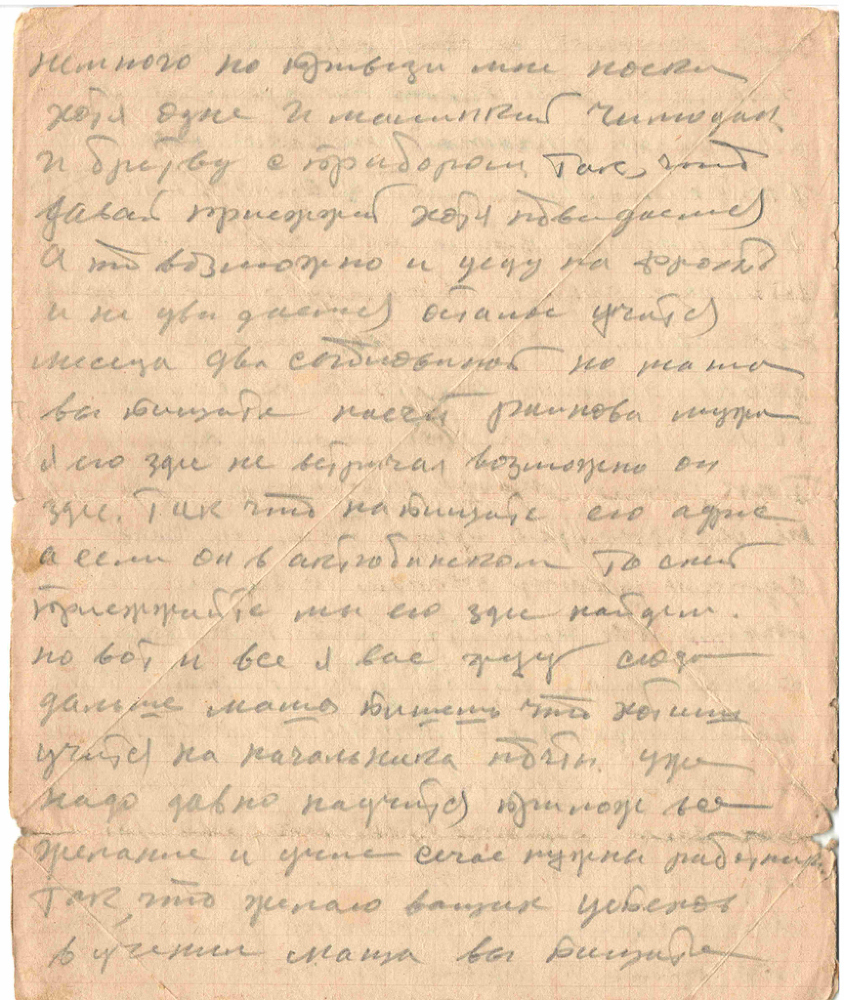 немного но привези мне носки
хотя одне и малинкий чимодан
и бритву с прибором так, что
давай приежжай хотя повидаемся
а то возможно и уеду на фронт
и не увидаемся осталос учится
месеца два с половиной но маша
вы пишите насчет мужа
я его зде не встричал возможно он
зде. Так что напишите его адрис
а если он в актюбинском то
приежжайте мы его зде найдем.
но вот и все я вас жду сюда
дальше маша пишешь что хотиш
учится на начальника почти уже
надо давно научится прилож все
желание и учис сечас нужны работники
Так, что желаю ващих успехов
в учении маша вы пишите